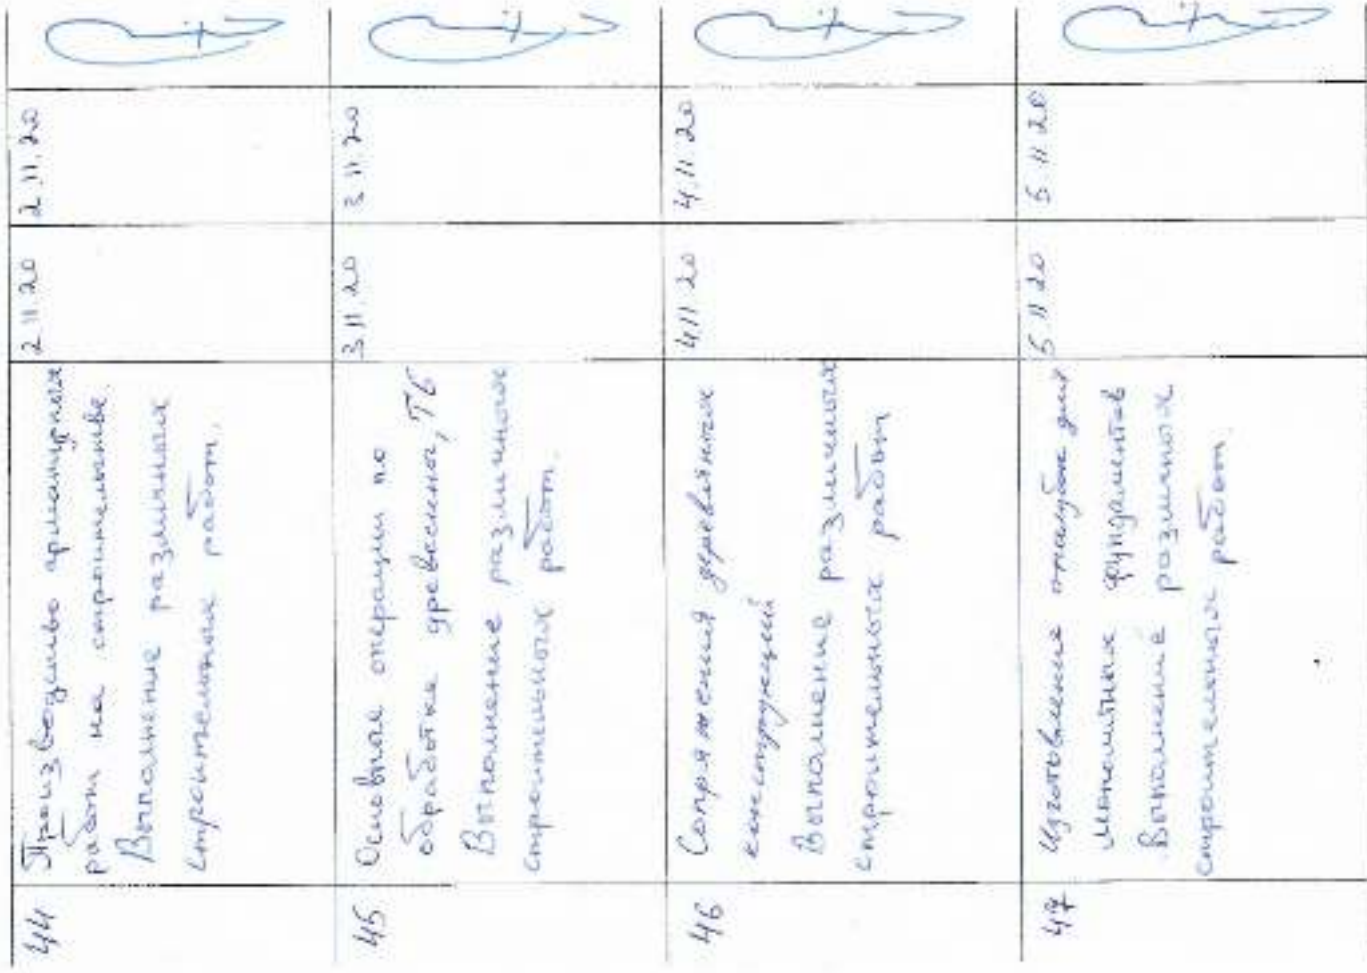 44
Производство арматурных
работ на строительстве.
Выполнение различных
строительных работ.
2.11.20
2.11.20
45
Основные операции по
обработке древесины, ТБ
Выполнение различных
строительных работ.
3.11.20
3.11.20
46
Сопряжения деревянных
конструкций
Выполнение различных
строительных работ
4.11.20
4.11.20
47
Изготовление опалубок для
монолитных фундаментов
Выполнение различных
строительных работ.
5 11 20
5 11 20